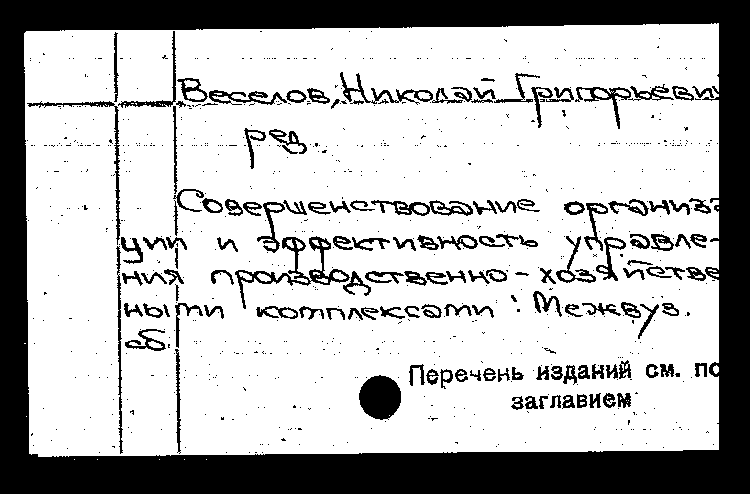 Веселов, Николай Григорьеви
ред.
Совершенствование организа
ции и эффективность управле-
ния производственно-хозяйстве
ными комплексами : Межвуз.
сб.
Перечень изданий см. по
заглавием